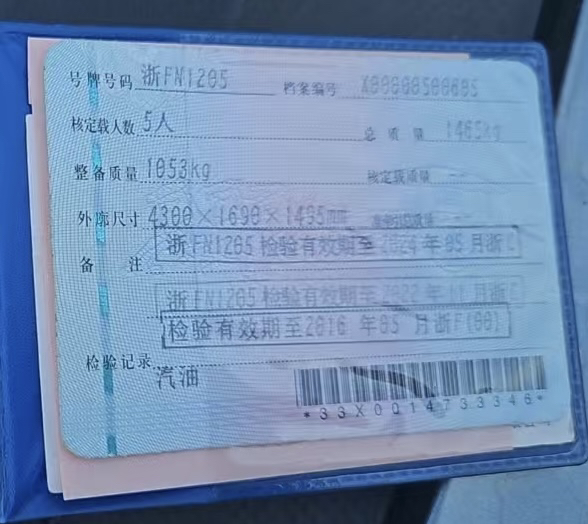 号牌号码 浙FN1205 档案编号 X00008500605
核定载人数 5人 总质量 1465kg
整备质量 1053kg 核定载质量 --
外廓尺寸 4300×1690×1495
浙FN1205 检验有效期至2024年05月浙
备注
浙FN1205 检验有效期至2022年11月浙
检验有效期至2016年05月浙F(00)
检验记录
汽油
*33X0014733346*